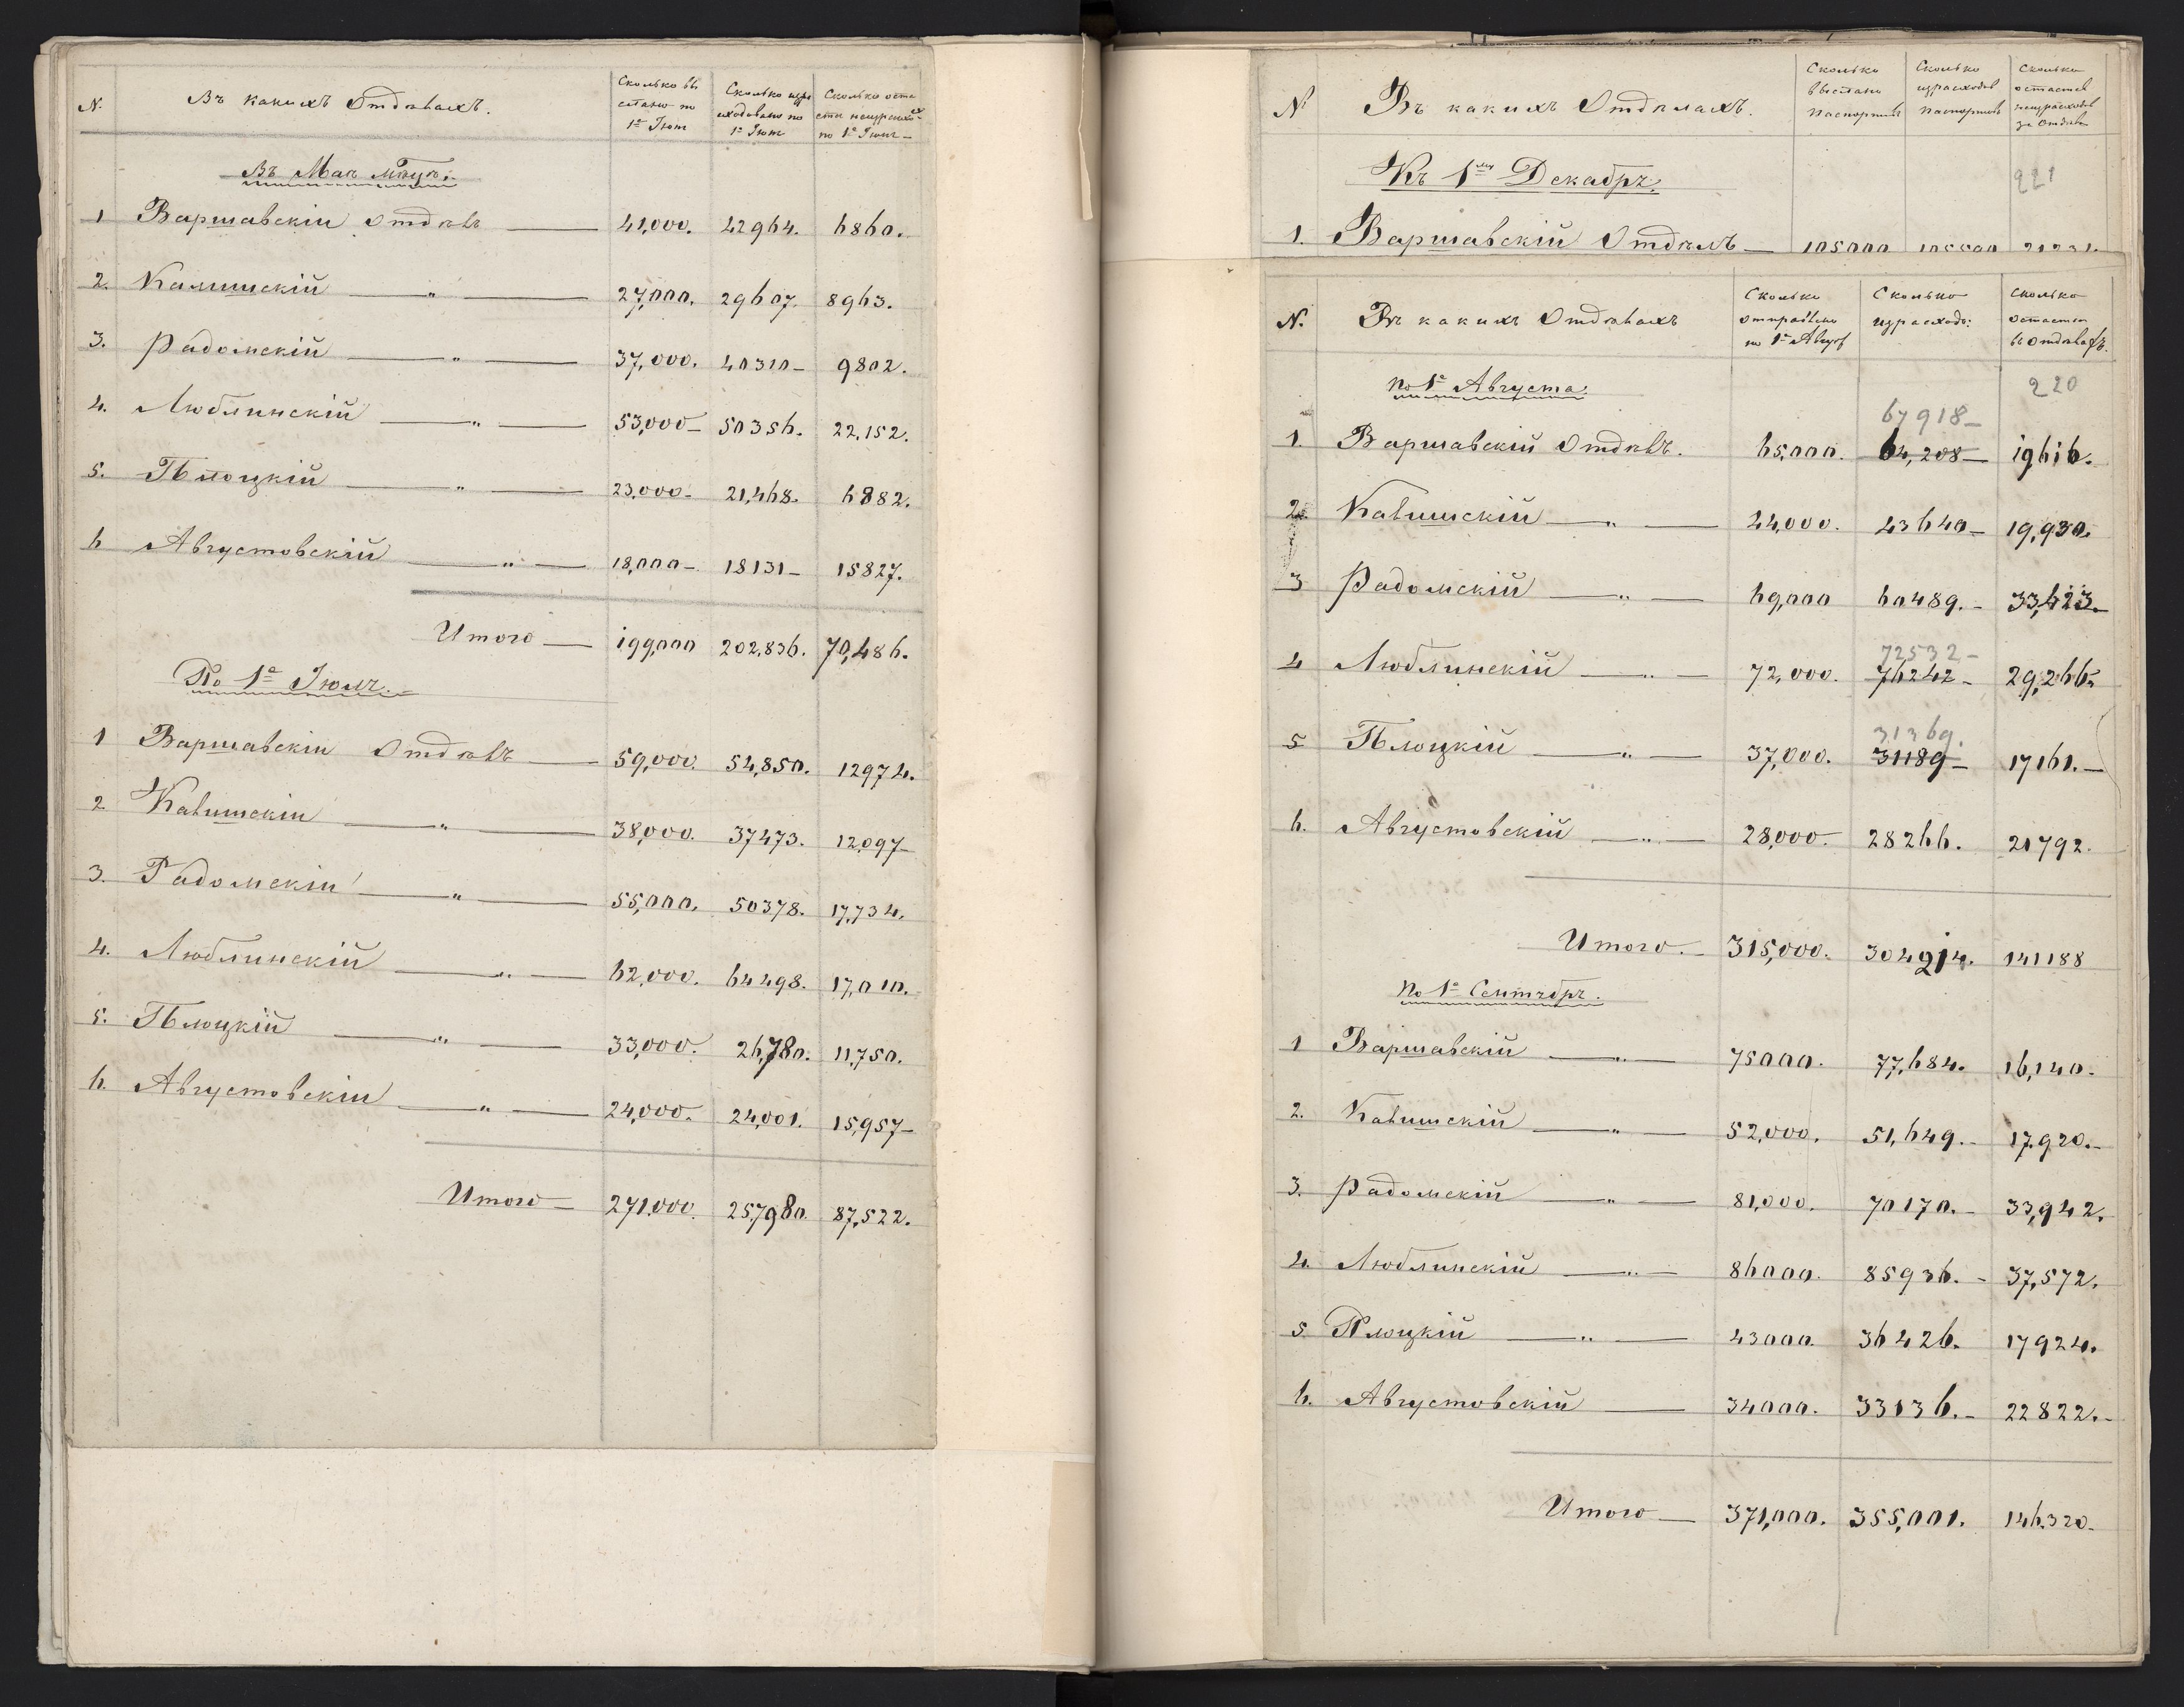 N. Въ какихъ Отдѣлахъ. Сколько вы
слано по
1е Іюня
Сколько изра
сходовано по
1е Іюня
Сколько оста
ется неизрасхо-
по 1е Іюня
Въ Маѣ мѣцѣ.
1 Варшавскій Отдѣлъ — 41,000. 42964. 6860.
2. Калишскій — " — 27,000. 29607. 8963.
3. Радомскій — " — 37,000. 40310 — 9802.
4. Люблинскій — " — 53,000 — 50356. 22,152.
5. Плоцкій — " — 23,000 — 21,468. 6882.
6 Августовскій — " — 18,000 — 18131 — 15827.
Итого — 199,000 202,836. 70,486.
По 1е Іюля.
1 Варшавскій Отдѣлъ — 59,000. 54,850. 12974.
2 Калишскій — " — 38,000. 37473. 12,097 —
3. Радомскій — " — 55,000. 50378. 17,734.
4. Люблинскій — " — 62,000. 64498. 17,010.
5. Плоцкій — " — 33,000. 26,780. 11,750.
6. Августовскій — " — 24,000. 24,001. 15,957 —
Итого — 271,000. 257,980. 87,522.
N Въ какихъ Отдѣлахъ. Сколько
выслано
паспортовъ
Сколько
израсходов
паспортовъ
Сколько
остается
неизрасходов
за Отдѣл
Къ 1му Декабря. 221
1. Варшавскій Отдѣлъ — 105000
N. Въ какихъ Отдѣлахъ Сколько
отправлено
по 1е Август
Сколько
израсход:
Сколько
остается
въ Отдѣлахъ.
По 1е Августа. 220
67918 —
1. Варшавскій Отдѣлъ. 65,000. 64,208 — 19616.
2. Калишскій — " — 44,000. 43640 — 19,930.
3 Радомскій — " — 69,000 60489. — 33,423. —
72532 —
4 Люблинскій — " — 72,000. 76242 — 29,266.
31369.
5 Плоцкій — " — 37,000. 31189 — 17161. —
6. Августовскій — " — 28,000. 28266. 21792.
Итого. — 315,000. 304914. 141188
По 1е Сентября.
1 Варшавскій — " — 75000. 77,684. 16,140.
2. Калишскій — " — 52,000. 51,649. — 17,920. —
3. Радомскій — " — 81,000. 70170. — 33,942.
4. Люблинскій — " — 86000. 85936. — 37,572.
5 Плоцкій — " — 43000. 36426. 17924.
6. Августовскій — 34000. 33136. — 22822. —
Итого — 371,000. 355,001. 146,320.